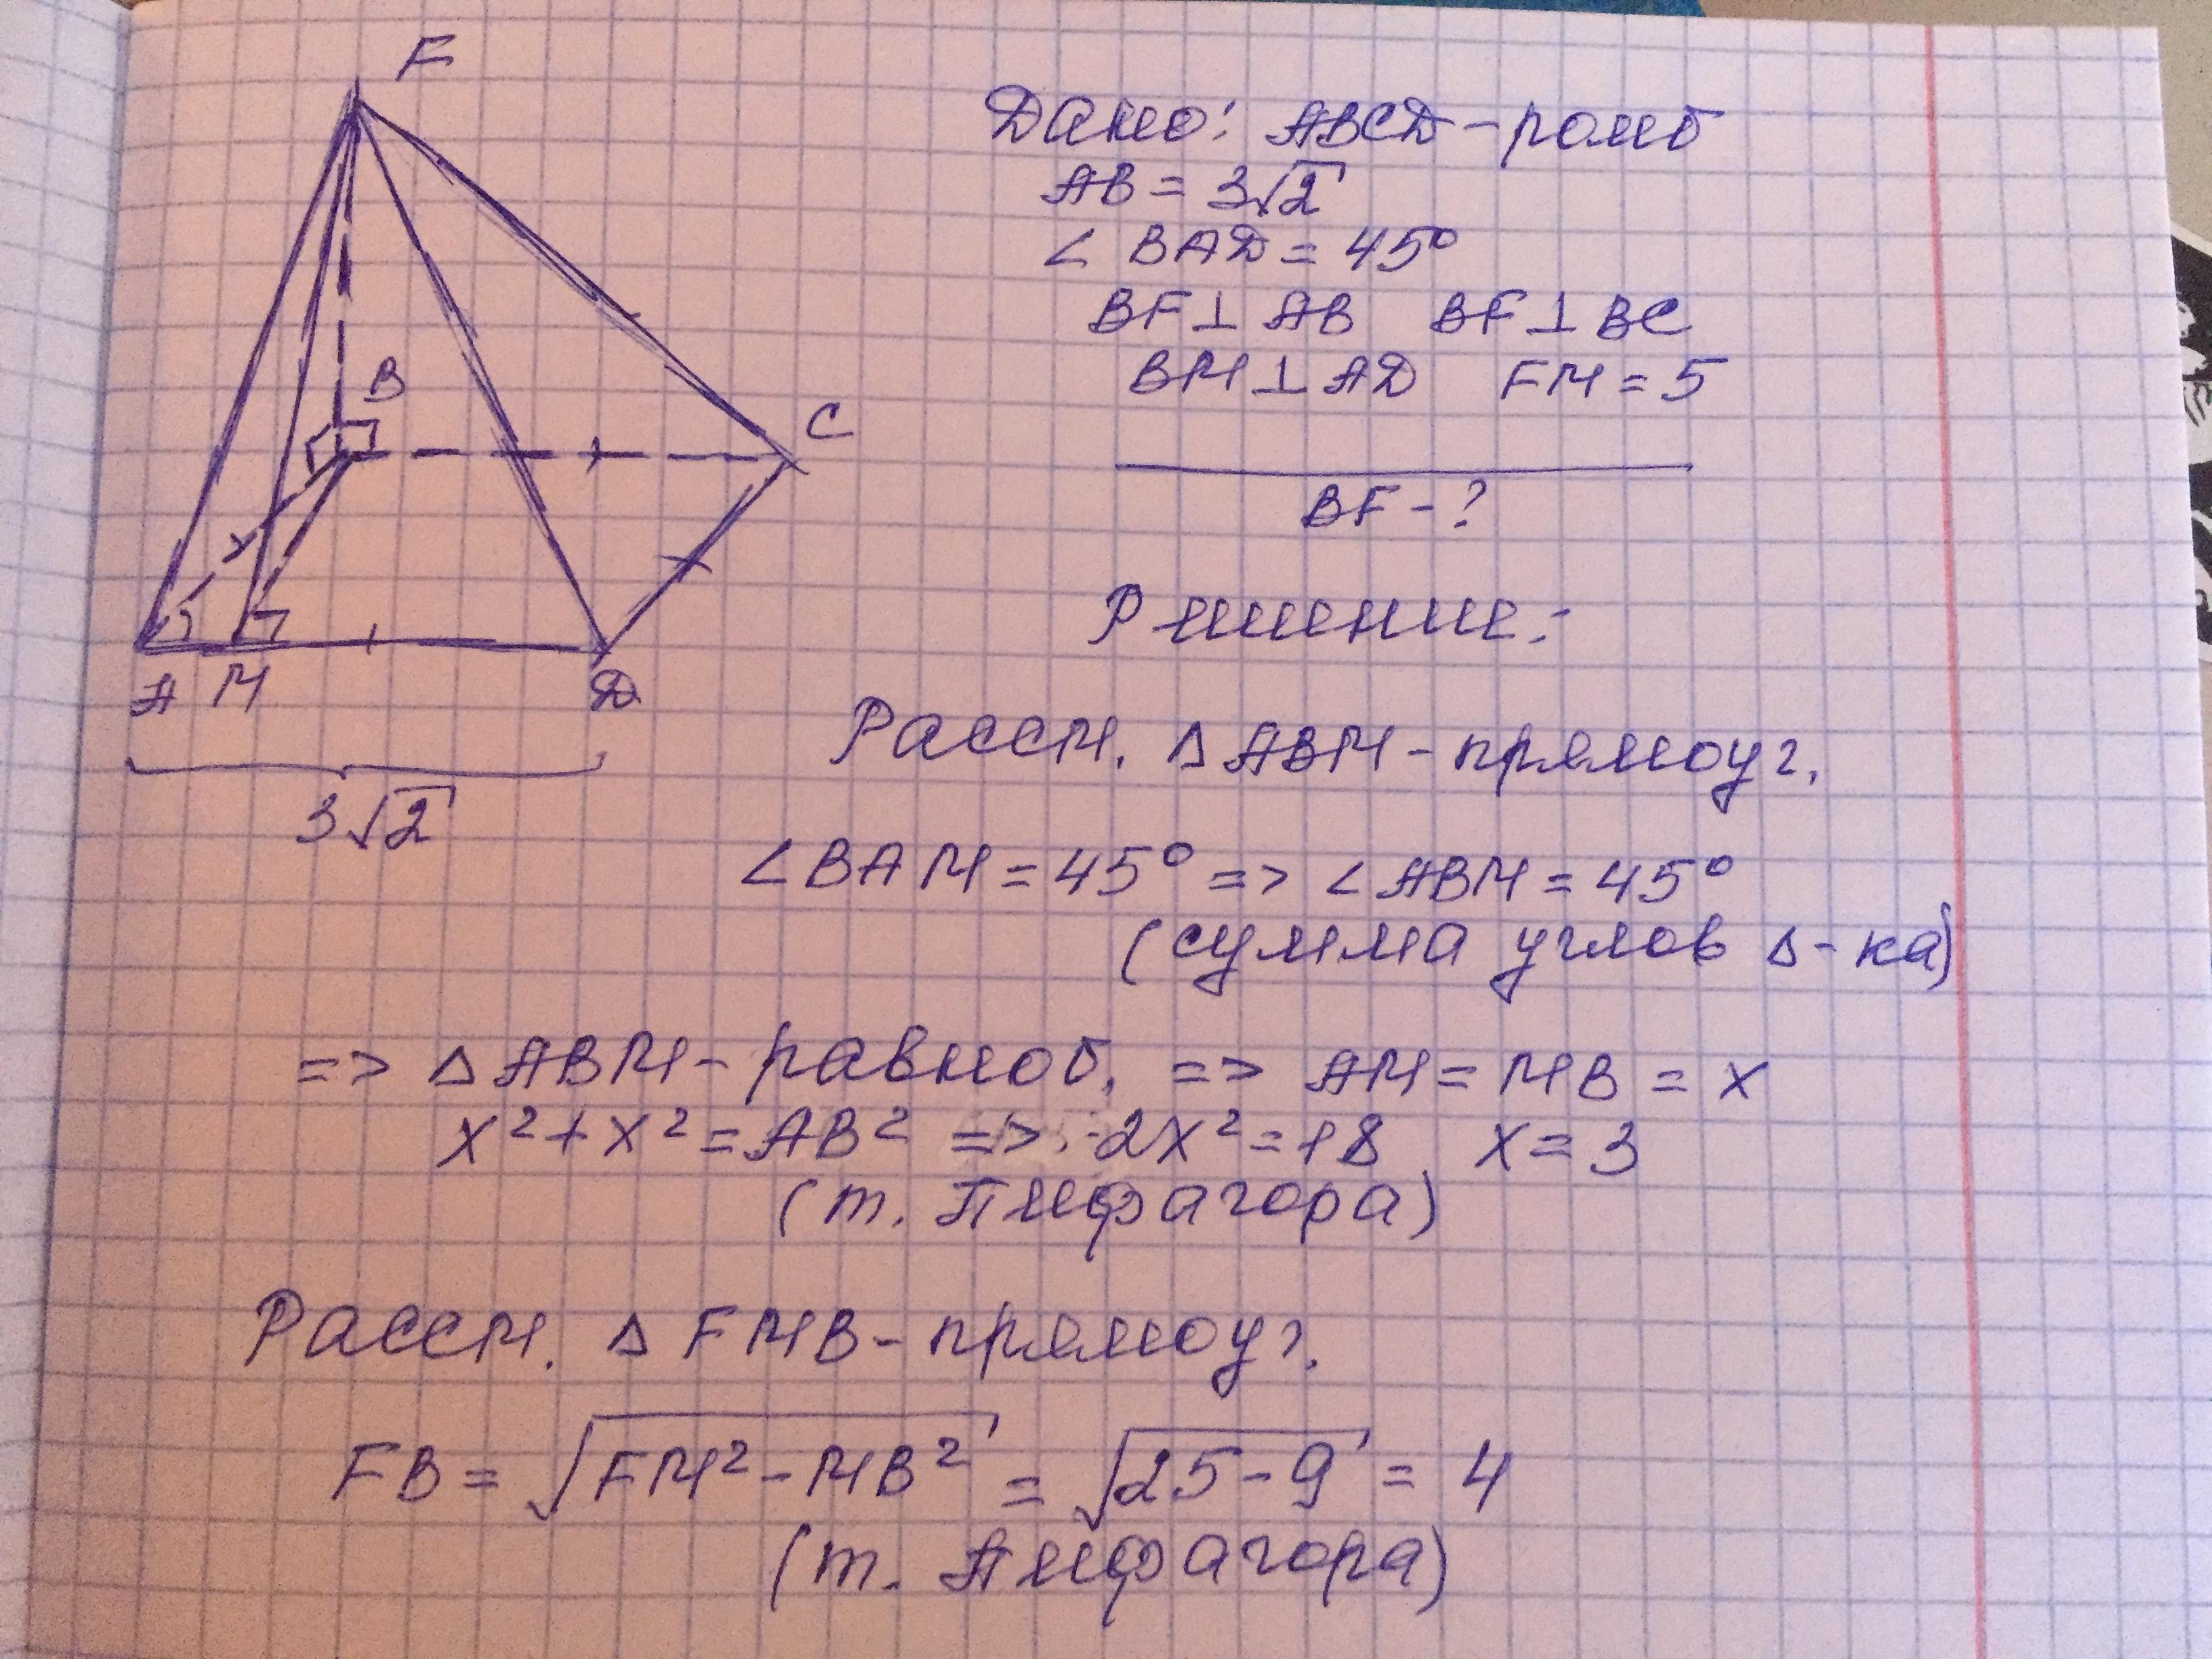 F
B
C
А М D
3√2
Дано: ABCD - ромб
AB = 3√2
∠ BAD = 45°
BF ⊥ AB BF ⊥ BC
BM ⊥ AD FM = 5
BF - ?
Решение:
Рассм. Δ ABM - прямоуг.
∠BAM = 45° => ∠ABM = 45°
(сумма углов Δ-ка)
=> Δ ABM - равноб. => AM = MB = x
x² + x² = AB² => 2x² = 18 x = 3
(т. Пифагора)
Рассм. Δ FMB - прямоуг.
FB = √FM² - MB² = √25 - 9 = 4
(т. Пифагора)